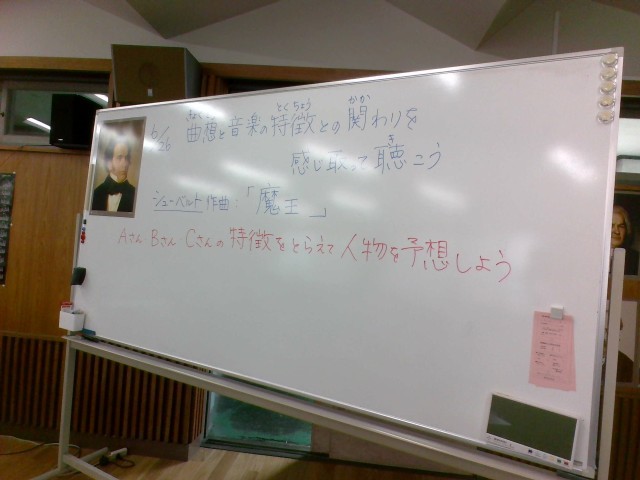 6/26 曲想と音楽の特徴との関わりを
感じ取って聴こう
シューベルト作曲:「魔王 」
Aさん Bさん Cさんの特徴をとらえて人物を予想しよう
とくちょう
かか
き